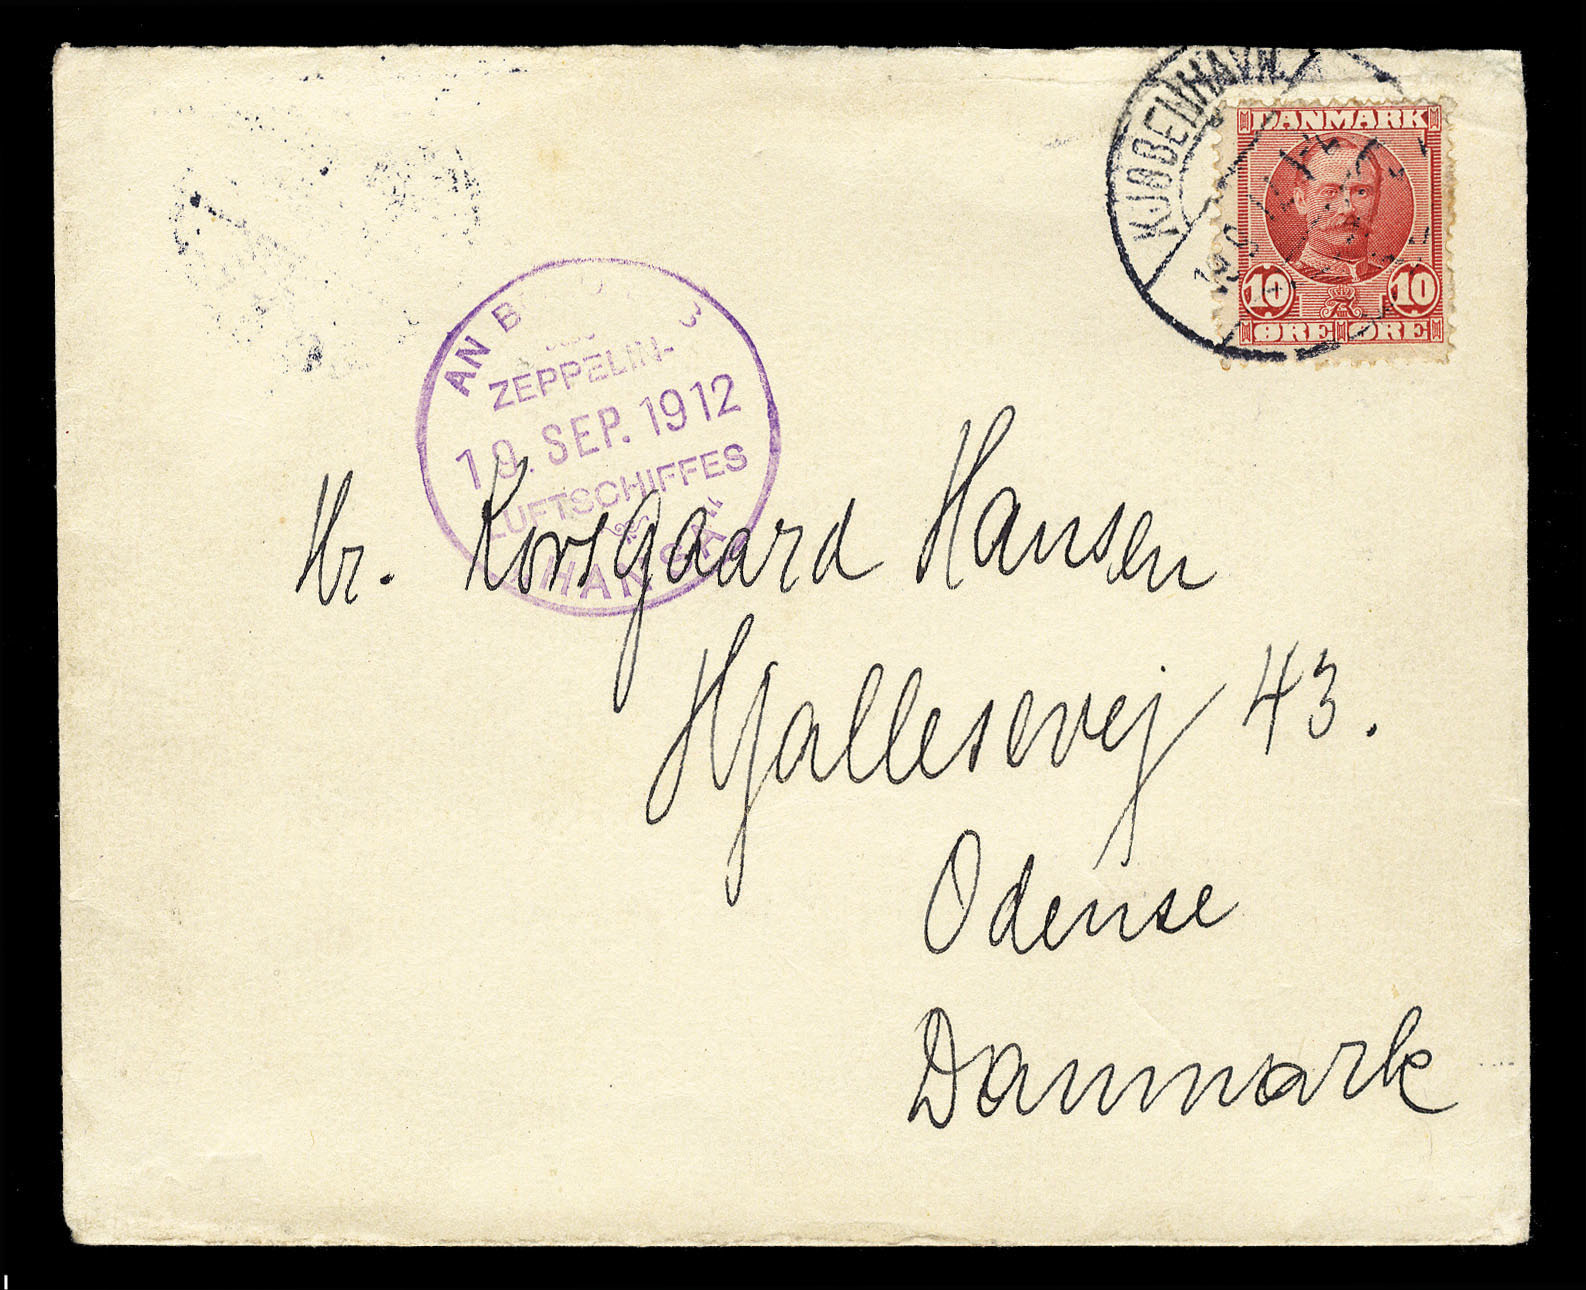 KJØBENHAVN.
DANMARK
10 10
ØRE ØRE
AN B
ZEPPELIN-
19. SEP. 1912
LUFTSCHIFFES
„HANSA“
Hr. Korsgaard Hansen
Hjallesevej 43.
Odense
Danmark